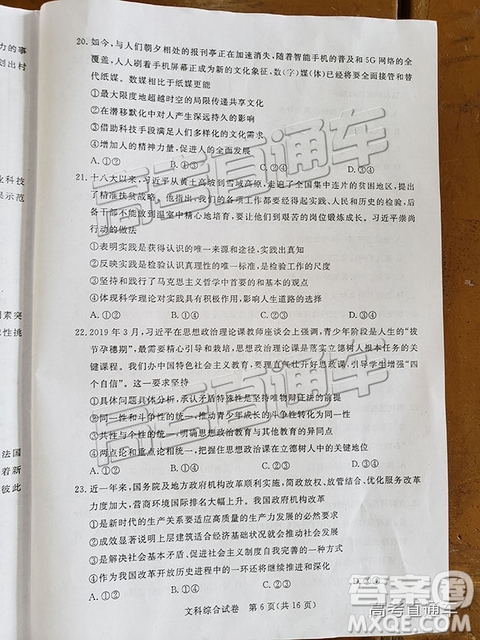 力的事
创出村
业科技
果示范
因素突
性挑
法国
着新
彼此
20. 如今，与人们朝夕相处的报刊亭正在加速消失，随着智能手机的普及和 5G 网络的全
覆盖，人人刷着手机屏幕正成为新的文化象征，数(字)媒(体)已经将要全面接管和替
代纸媒。数媒相比于纸媒更能
①最大限度地超越时空的局限传递共享文化
②在潜移默化中对人产生深远持久的影响
③借助科技手段满足人们多样化的文化需求
④增加人的精神力量，促进人的全面发展
A. ①② B. ①③ C. ②④ D. ③④
21. 十八大以来，习近平从黄土高坡到雪域高原，走遍了全国集中连片的贫困地区，提出
了精准扶贫战略。他指出，我们的各项工作都要经得起实践、人民和历史的检验，后
备干部不能放到温室中精心地培育，要让他们到艰苦的岗位锻炼成长。习近平崇尚
行动的做法
①表明实践是获得认识的唯一来源和途径，实践出真知
②反映实践是检验认识真理性的唯一标准，是检验工作的尺度
③坚持和践行了马克思主义哲学中首要的和基本的观点
④体现科学理论对实践具有积极作用，影响人生道路的选择
A. ①② B. ①④ C. ②③ D. ③④
22. 2019 年 3 月，习近平在思想政治理论课教师座谈会上强调，青少年阶段是人生的“拔
节孕穗期”，最需要精心引导和栽培，思想政治理论课是落实立德树人根本任务的关键
课程。我们办中国特色社会主义教育，要理直气壮开好思政课，引导学生增强“四
个自信”。这一要求坚持
①具体问题具体分析，承认矛盾特殊性是坚持唯物辩证法的前提
②同一性和斗争性的统一，推动青少年成长的斗争性转化为同一
③普遍性和特殊性的统一，阐明思想政治教育与其他教育的异同
④两点论和重点论统一，把握住思想政治课在立德树人中的关键地位
A. ①② B. ①④ C. ②③ D. ③④
23. 近一年来，国务院及地方政府机构改革顺利实施，简政放权、放管结合、优化服务改革
力度加大，营商环境国际排名大幅上升。我国政府机构改革
①是新时代的生产关系要适应高质量的生产力发展的必然要求
②成效显著说明上层建筑适合经济基础状况就能推动生产力发展
③是解决社会基本矛盾、促进社会主义制度自我完善的一种方式
④作为我国改革进程中的一环还将继续推进和深化
文科综合试卷 第 6 页(共 16 页)
高考直通车
高考直通车
高考直通车
答案圈
高考直通车